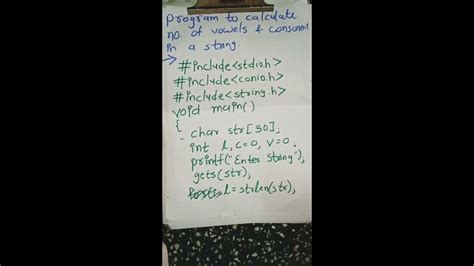 Program to calculate
no. of vowels & consonent
in a string.
→
#include<stdio.h>
#include<conio.h>
#include<string.h>
void main()
{
char str[50];
int l, c=0, v=0;
printf("Enter String");
gets(str);
l=strlen(str);